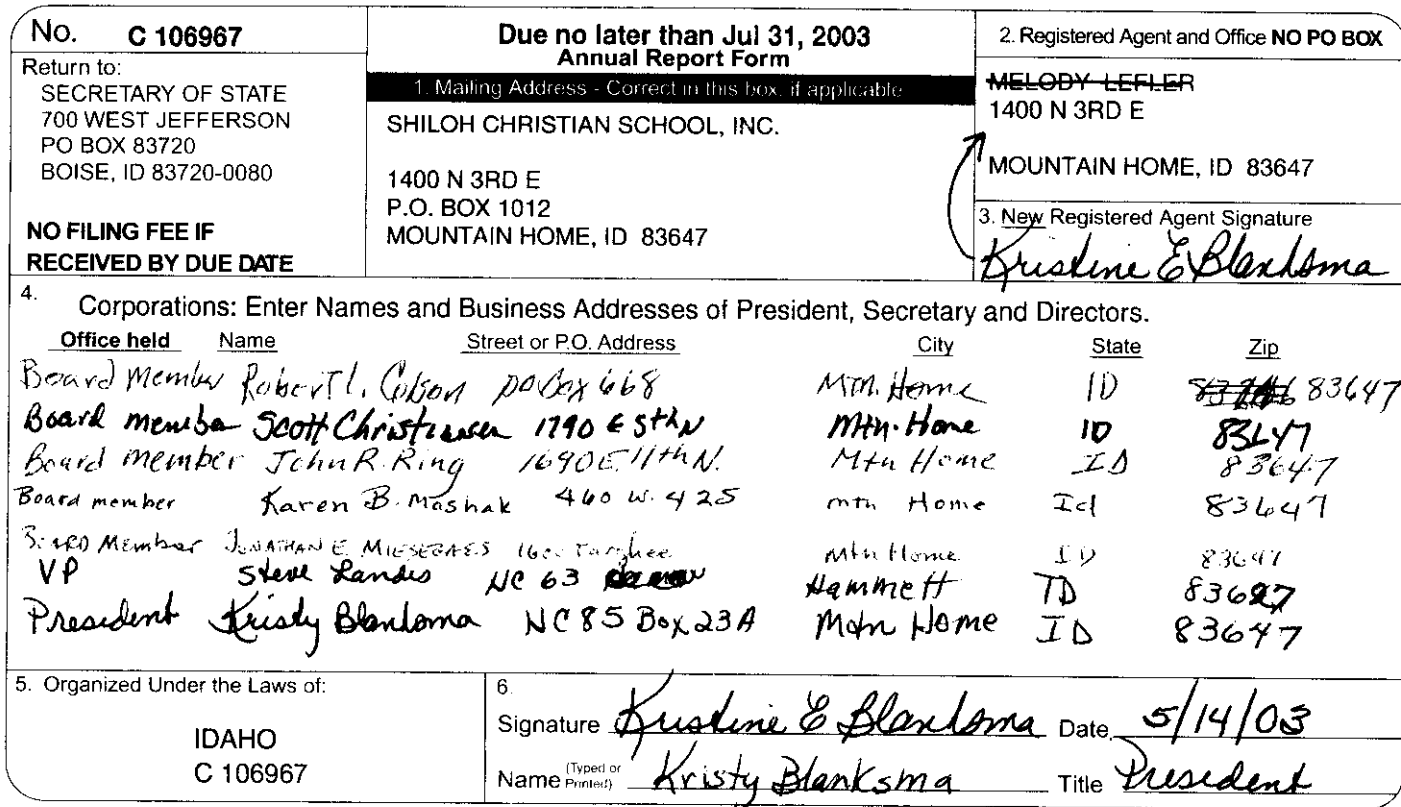 No. C 106967
Return to:
SECRETARY OF STATE
700 WEST JEFFERSON
PO BOX 83720
BOISE, ID 83720-0080
NO FILING FEE IF
RECEIVED BY DUE DATE
Due no later than Jul 31, 2003
Annual Report Form
1. Mailing Address - Correct in this box, if applicable
SHILOH CHRISTIAN SCHOOL, INC.
1400 N 3RD E
P.O. BOX 1012
MOUNTAIN HOME, ID 83647
2. Registered Agent and Office NO PO BOX
MELODY LEFLER
1400 N 3RD E
MOUNTAIN HOME, ID 83647
3. New Registered Agent Signature
Kristine E Blanksma
4. Corporations: Enter Names and Business Addresses of President, Secretary and Directors.
Office held Name Street or P.O. Address City State Zip
Board Member Robert L. Colson PO Box 668 Mtn. Home ID 83647
Board member Scott Christensen 1790 E 5th N Mtn. Home ID 83647
Board member John R. Ring 1690 E. 11th N. Mtn Home ID 83647
Board member Karen B. Mashak 460 W. 425 mtn Home Id 83647
Board Member JONATHAN E. MIESEGAES Targhee Mtn Home ID 83647
VP Steve Landis HC 63 Hammett ID
President Kristy Blanksma HC 85 Box 23A Mtn Home ID 83647
5. Organized Under the Laws of:
IDAHO
C 106967
6.
Signature Kristine E Blanksma Date 5/14/03
Name (Typed or Printed) Kristy Blanksma Title President